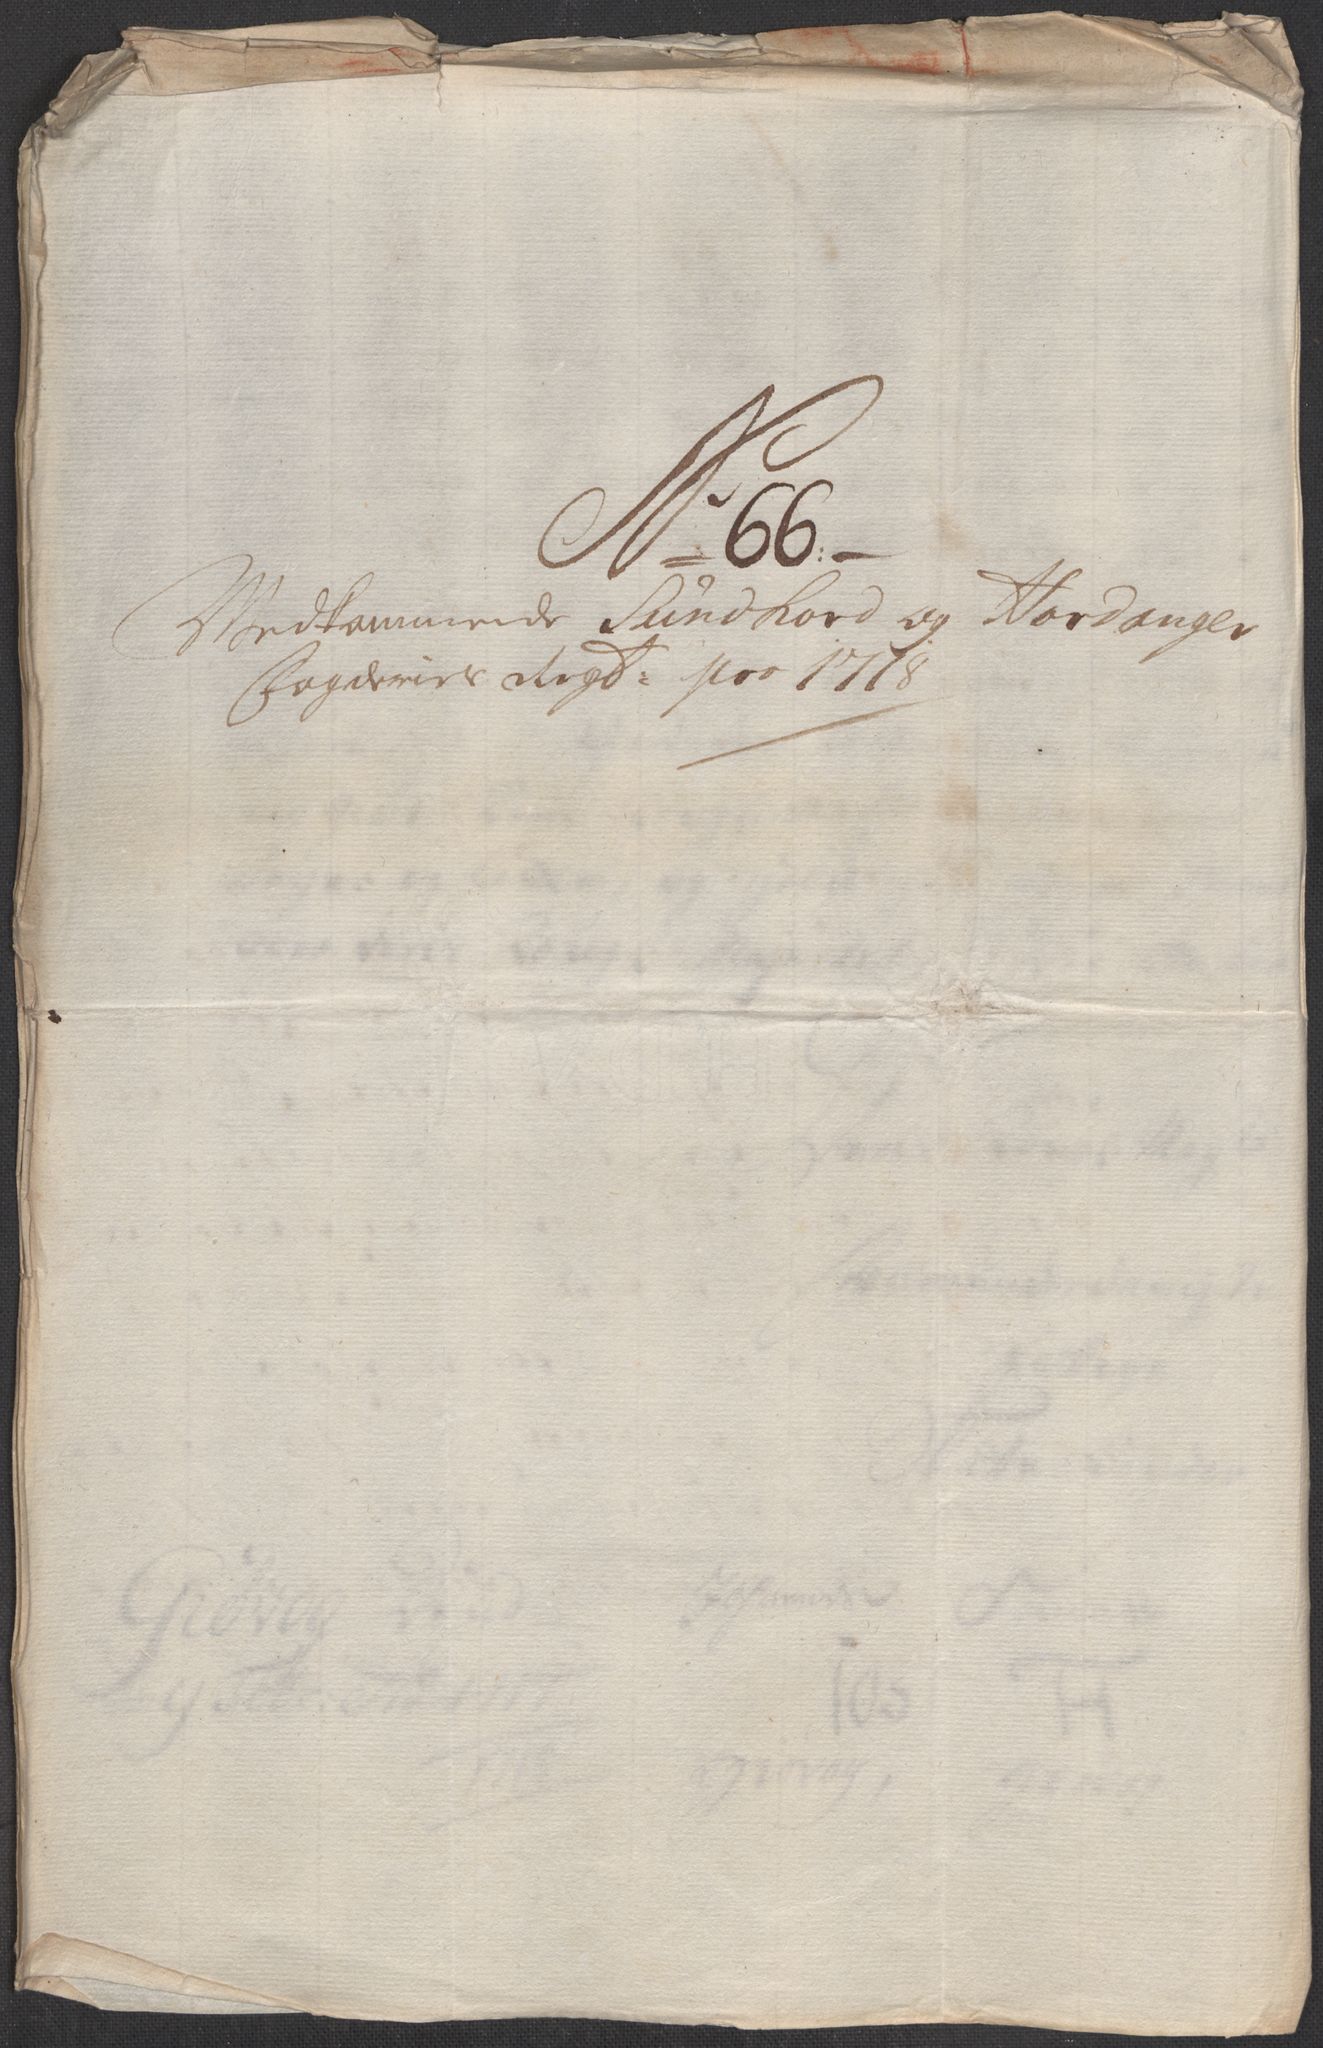 No 66:-
Vedkommende Sundhord og Hardanger
Fogderies Regb: pro 1718